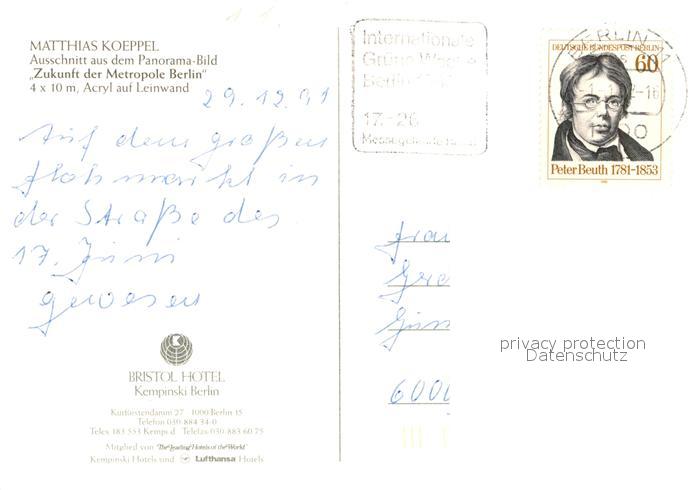 MATTHIAS KOEPPEL
Ausschnitt aus dem Panorama-Bild
„Zukunft der Metropole Berlin“
4 x 10 m, Acryl auf Leinwand
29.12.91
Auf dem großen
Flohmarkt in
der Straße des
17. Juni
gewesen
BRISTOL HOTEL
Kempinski Berlin
Kurfürstendamm 27 1000 Berlin 15
Telefon 030-884 34-0
Telex 183 553 Kemps d Telefax 030-883 60 75
Mitglied von "The Leading Hotels of the World"
Kempinski Hotels und Lufthansa Hotels
Internationale
Berlin
17.-26
DEUTSCHE BUNDESPOST BERLIN
60
Peter Beuth 1781-1853
BERLIN
Frau
privacy protection
Datenschutz